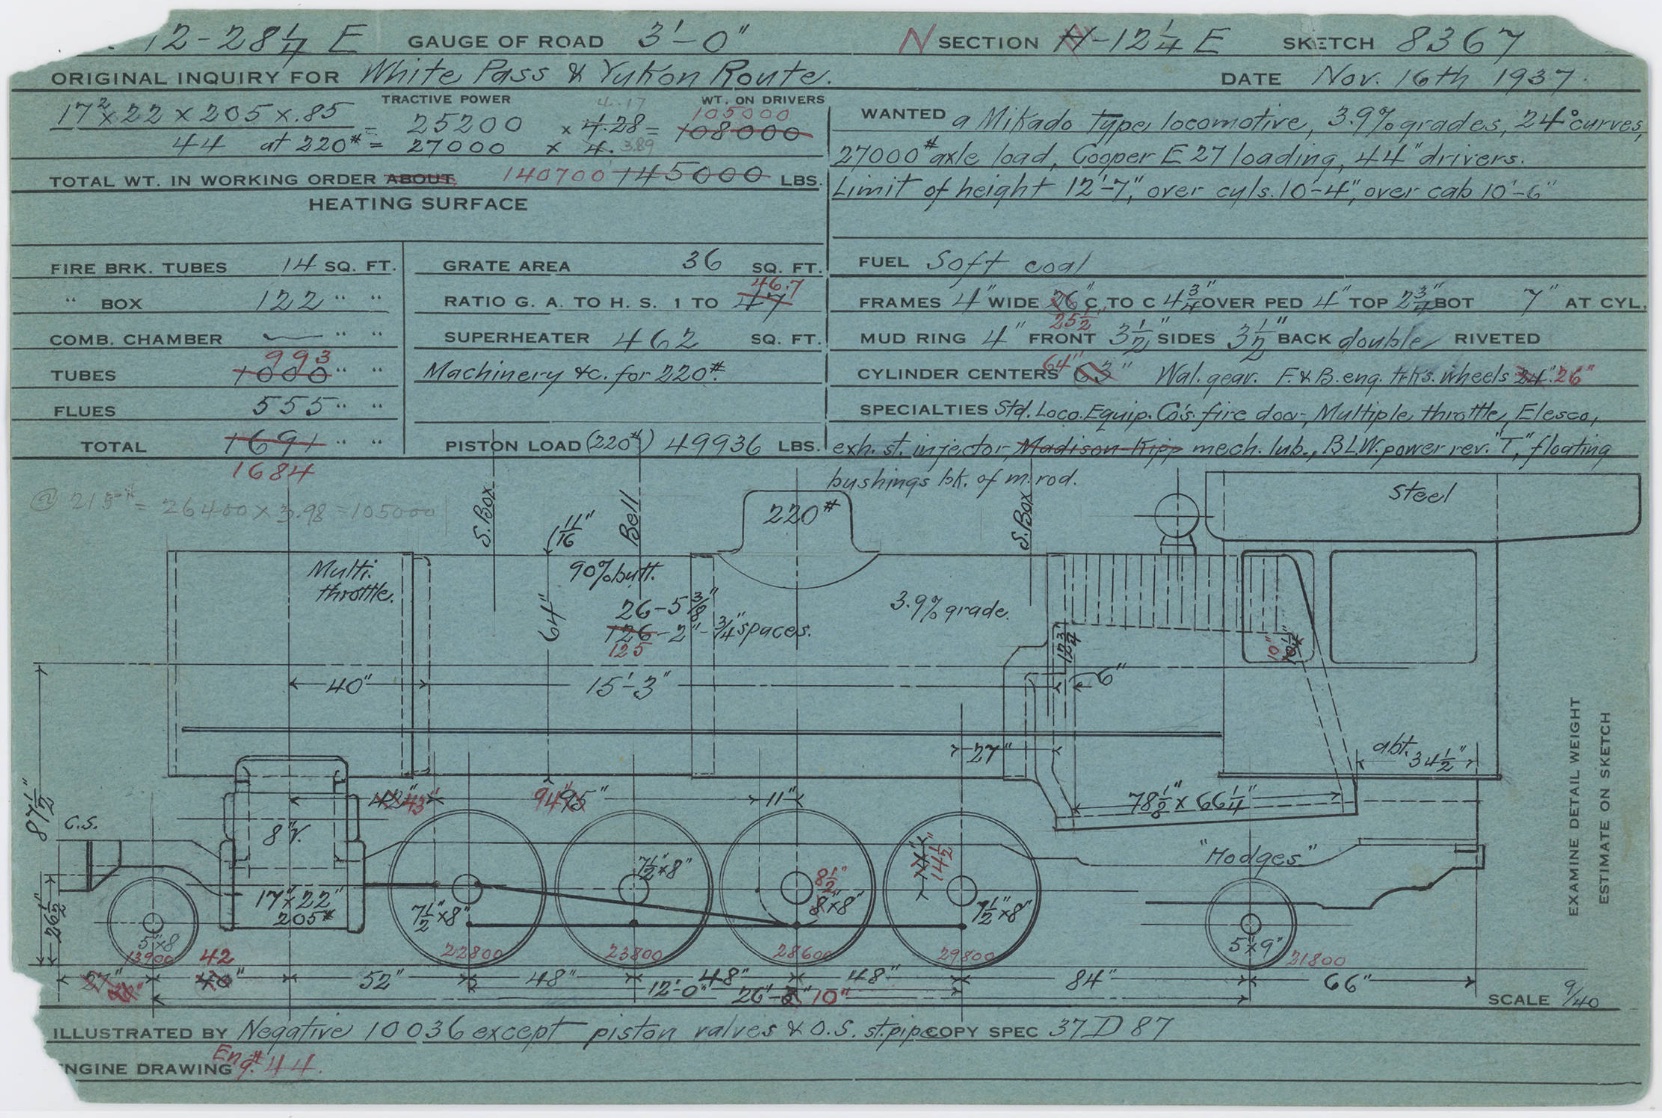 12-28 1/4 E GAUGE OF ROAD 3'-0" N SECTION N-12 1/4 E SKETCH 8367
ORIGINAL INQUIRY FOR White Pass & Yukon Route. DATE Nov. 16th 1937.
TRACTIVE POWER WT. ON DRIVERS
17² x 22 x 205 x .85 = 25200 x 4.28 = 108000 4.17 105000
44 at 220# = 27000 x 4. 3.89
TOTAL WT. IN WORKING ORDER ABOUT 140700 145000 LBS.
WANTED a Mikado type locomotive, 3.9% grades, 24° curves,
27000# axle load, Cooper E 27 loading, 44" drivers.
Limit of height 12'-7", over cyls. 10'-4", over cab 10'-6"
HEATING SURFACE
FIRE BRK. TUBES 14 SQ. FT.
" BOX 122 " "
COMB. CHAMBER — " "
993
TUBES 1000 " "
FLUES 555 " "
TOTAL 1691 " "
1684
GRATE AREA 36 SQ. FT.
46.7
RATIO G. A. TO H. S. 1 TO 47
SUPERHEATER 462 SQ. FT.
Machinery &c. for 220#.
PISTON LOAD (220#) 49936 LBS.
FUEL Soft coal
FRAMES 4" WIDE 26" C TO C 4 3/4" OVER PED 4" TOP 2 3/4" BOT 7" AT CYL.
25 1/2"
MUD RING 4" FRONT 3 1/2" SIDES 3 1/2" BACK double RIVETED
CYLINDER CENTERS 64" 63" Wal. gear. F. & B. eng. trks. wheels 24" 26"
SPECIALTIES Std. Loco. Equip. Co's. fire door, Multiple throttle, Elesco,
exh. st. injector, Madison-Kipp mech. lub., BLW. power rev. "T", floating
bushings bk. of m. rod.
@ 215# = 26400 x 3.98 = 105000
S. Box
11/16"
Bell
220#
S. Box
Steel
Multi.
throttle.
90% butt.
64"
26-5 3/8"
126-2"-3/4" spaces.
125
3.9% grade.
12 3/4"
10"
10 1/2"
40"
15'-3"
6"
27"
abt. 34 1/2"
87 1/2"
43"
94"
95"
11"
78 1/2" x 66 1/4"
C.S.
8"V.
"Hodges"
17"x22"
205#
7 1/2"x8"
7 1/2"x8"
8 1/2"
8"x8"
14 1/2"
7 1/2"x8"
26 1/2"
5"x8"
5"x9"
13900
22800
23800
28600
29800
21800
42
40"
52"
48"
48"
48"
84"
66"
12'-0"
26'-8" 10"
EXAMINE DETAIL WEIGHT
ESTIMATE ON SKETCH
SCALE 9/40
ILLUSTRATED BY Negative 10036 except piston valves & O.S. st. pipe COPY SPEC 37 D 87
ENGINE DRAWING Eng.# 44.